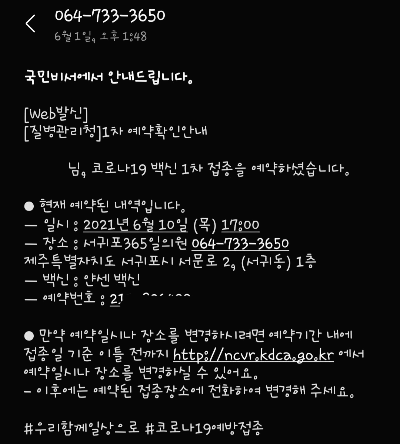 064-733-3650
6월 1일, 오후 1:48
국민비서에서 안내드립니다.
[Web발신]
[질병관리청]1차 예약확인안내
님, 코로나19 백신 1차 접종을 예약하셨습니다.
● 현재 예약된 내역입니다.
- 일시 : 2021년 6월 10일 (목) 17:00
- 장소 : 서귀포365일의원 064-733-3650
제주특별자치도 서귀포시 서문로 2, (서귀동) 1층
- 백신 : 얀센 백신
- 예약번호 : 21
● 만약 예약일시나 장소를 변경하시려면 예약기간 내에
접종일 기준 이틀 전까지 http://ncvr.kdca.go.kr 에서
예약일시나 장소를 변경하실 수 있어요.
- 이후에는 예약된 접종장소에 전화하여 변경해 주세요.
#우리함께일상으로 #코로나19예방접종